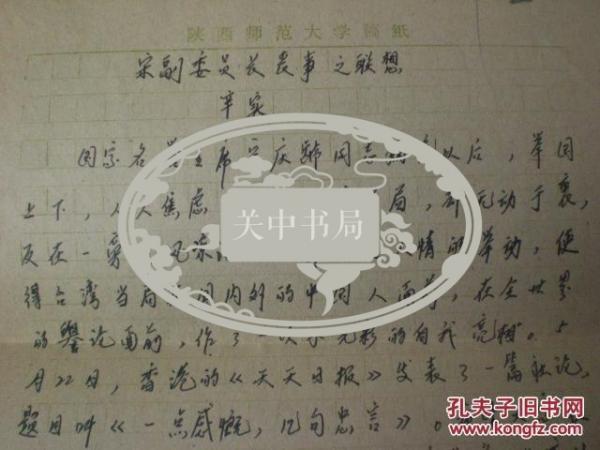 陕西师范大学稿纸
宋副委员长丧事之联想
辛实
国家名誉主席宋庆龄同志 以后，举国
上下，人人焦虑 局，却无动于衷，
反在一旁 风凉 人情的举动，使
得台湾当局 国内外的中国人面前，在全世界
的舆论面前，作了一次不光彩的自我亮相。5
月22日，香港的《天天日报》发表了一篇社论，
题目叫《一点感慨，几句忠言》。
关中书局
孔夫子旧书网
www.kongfz.com